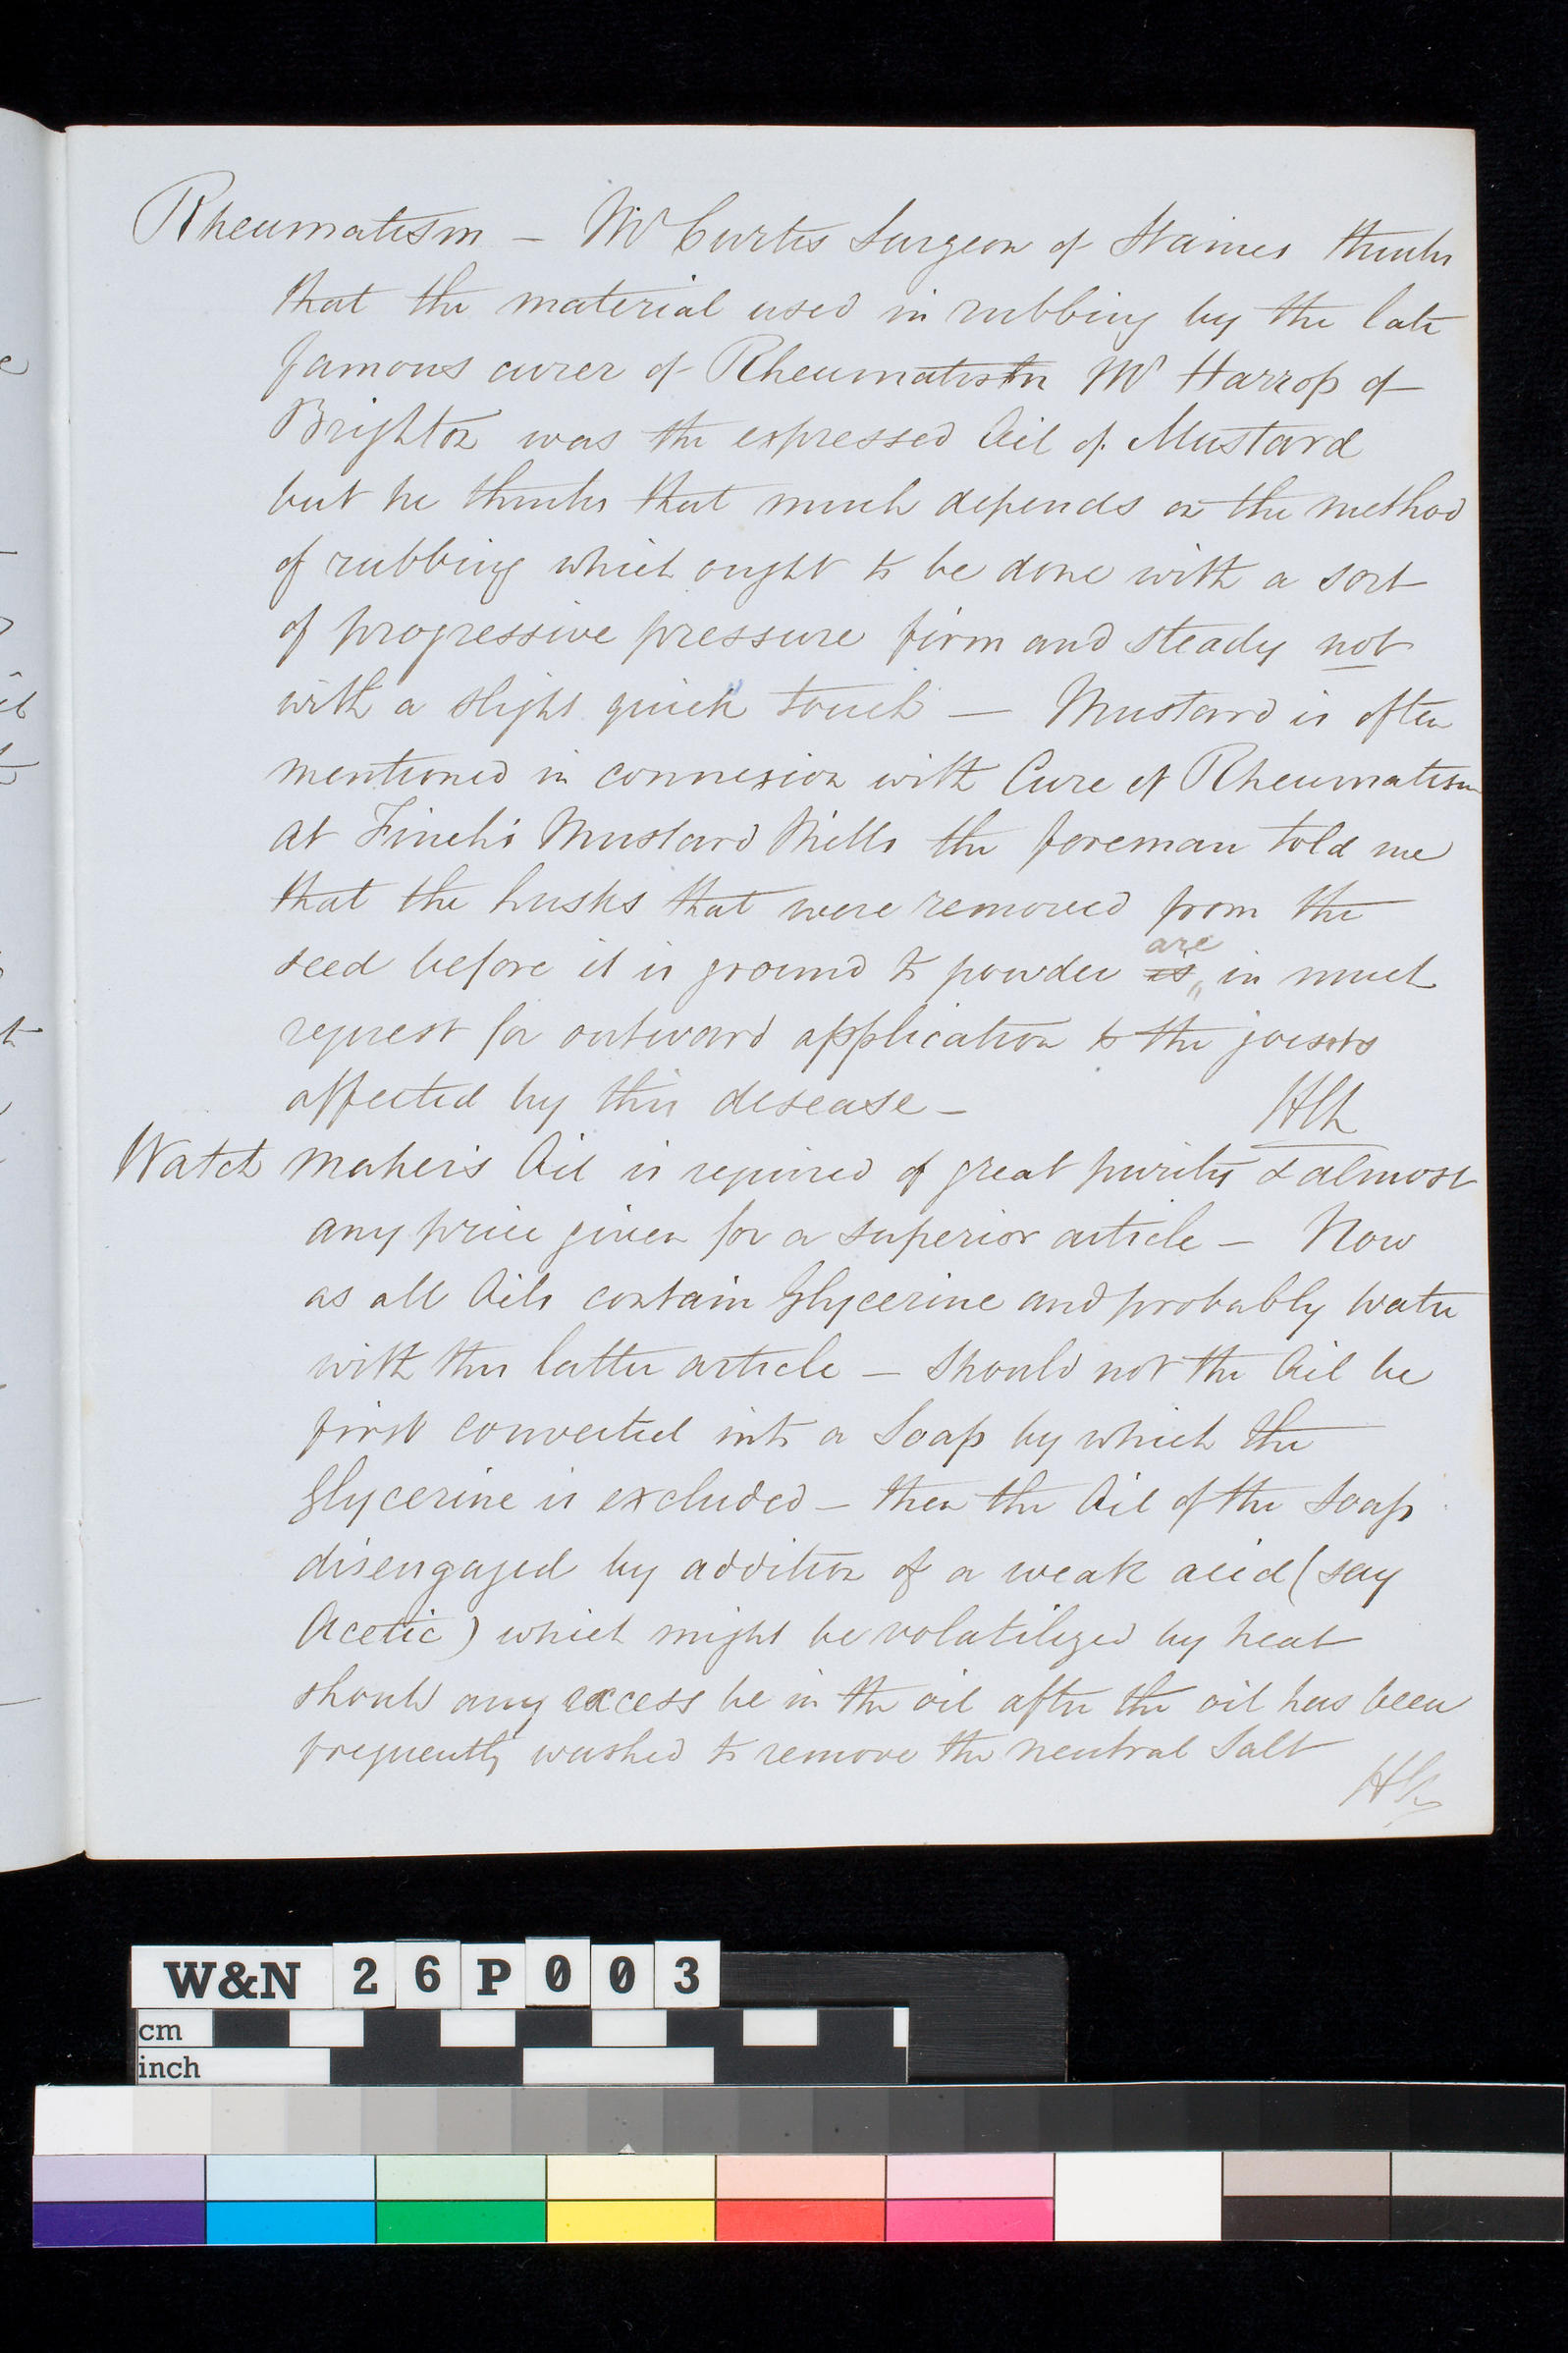 Rheumatism – Mr Curtis Surgeon of Staines thinks
that the material used in rubbing by the late
famous curer of Rheumatism Mr Harrop of
Brighton was the expressed Oil of Mustard
but he thinks that much depends on the method
of rubbing which ought to be done with a sort
of progressive pressure firm and steady not
with a slight quick touch — Mustard is often
mentioned in connexion with Cure of Rheumatism
at Finch's Mustard Mills the foreman told me
that the husks that were removed from the
are
seed before it is ground to powder is in much
request for outward application to the joints
affected by this disease –
Watch maker's Oil is required of great purity & almost
any price given for a superior article – Now
as all Oils contain Glycerine and probably water
with this latter article – should not the Oil be
first converted into a Soap by which the
Glycerine is excluded – then the Oil of the Soap
disengaged by addition of a weak acid (say
Acetic) which might be volatilized by heat
should any excess be in the oil after the oil has been
frequently washed to remove the neutral Salt
W&N 26P003
cm
inch